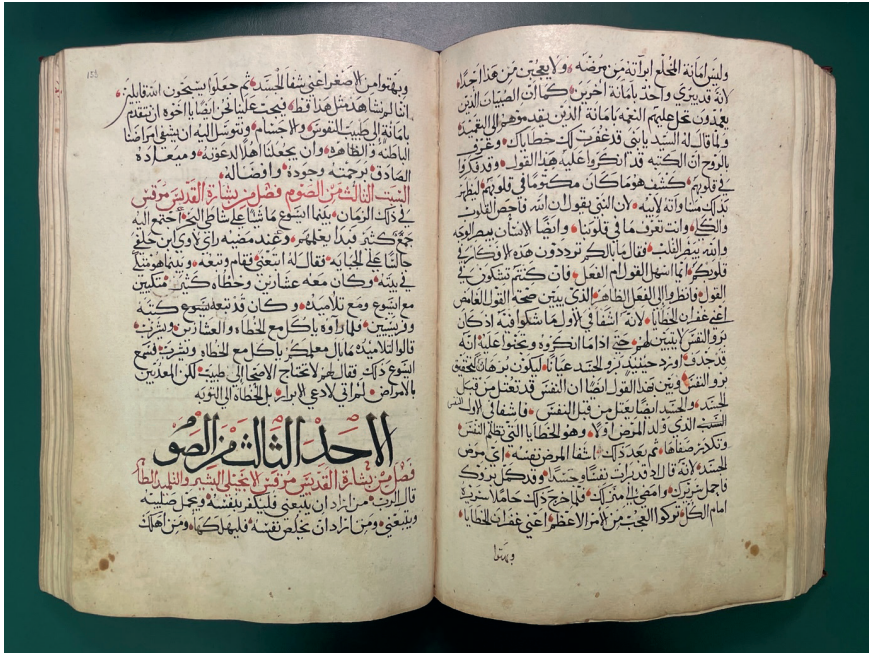 وليس امانة المخلع ابراته من مرضه ولا يعجبن من هذا احدا
لانه قد يبري واحد بامانة اخرين كما ان الصبيان الذين
يعمدون تحل عليهم النعمه بامانة الذين يقدموهم الي المعموديه
ولما قال له السيد يا بني قد غفرت لك خطاياك وعرف
بالروح ان الكتبه قد انكروا عليه هذا القول وقد فكروا
في قلوبهم كشف هو ما كان مكتوما في قلوبهم ليظهر
بذلك مساواته لابيه لان النبي يقول ان الله فاحص القلوب
والكلا وانت تعرف ما في قلوبنا وايضا الانسان ينظر الوجه
والله ينظر القلب فقال ما بالكم ترددون هذه الافكار في
قلوبكم ايما اسهل القول ام الفعل فان كنتم تشكون في
القول فانظروا الي الفعل الظاهر الذي يبين صحة القول الغامض
اعني غفران الخطايا لانه اشفا في الاول ما شكوا فيه اذ كان
برو النفس لا يتبين لهم حتي اذا ما انكروه وتجنوا عليه انه
قد جدف اورد حينيذ برو الجسد عيانا ليكون برهان لتحقيق
برو النفس وبين بهذا القول ايضا ان النفس قد تعتل من قبل
الجسد والجسد ايضا يعتل من قبل النفس فاشفا في الاول النفس
السبب الذي ولد المرض اولا وهو الخطايا التي تظلم النفس
وتكدر صفاها ثم بعد ذلك اشفا المرض نفسه اي مرض
الجسد لانه قال له قد برات نفسا وجسدا وقد كمل بروك
فاحمل سريرك وامضي الي منزلك فلما خرج ذلك حاملا سريره
امام الكل تركوا العجب من الامر الاعظم اعني غفران الخطايا
وبهتوا
وبهتوا من الاصغر اعني شفا الجسد ثم جعلوا يسبحون الله قايلين
اننا لم نشاهد مثل هذا قط فيجب علينا نحن ايضا يا اخوه ان نتقدم
بامانة الي طبيب النفوس والاجسام ونتوسل اليه ان يشفي امراضنا
الباطنه والظاهره وان يجعلنا اهلا لدعوته وميعاده
الصادق برحمته وجوده وافضاله
السبت الثالث من الصوم فصل من بشارة القديس مرقس
في ذلك الزمان بينما يسوع ماشيا علي شاطي البحر اجتمع اليه
جمع كثير فبدا يعلمهم وعند مضيه راي لاوي ابن حلفي
جالسا علي الجبايه فقال له اتبعني فقام وتبعه وبينما هو متكيا
في بيته وكان معه عشارين وخطاه كثير متكيين
مع يسوع ومع تلاميذه وكان قد تبعه يسوع كتبه
وفريسيين فلما راوه ياكل مع الخطاه والعشارين ويشرب
قالوا لتلاميذه ما بال معلمكم ياكل مع الخطاه ويشرب فسمع
يسوع ذلك فقال لهم لا تحتاج الاصحا الي طبيب لكن المعذبين
بالامراض لم اتي لادعي الابرار بل الخطاه الي التوبه
الاحد الثالث من الصوم
فصل من بشارة القديس مرقس الانجيلي البشير والتلميذ الطاهر
قال الرب من اراد ان يتبعني فليكفر بنفسه ويحمل صليبه
ويتبعني ومن اراد ان يخلص نفسه فليهلكها ومن اهلك